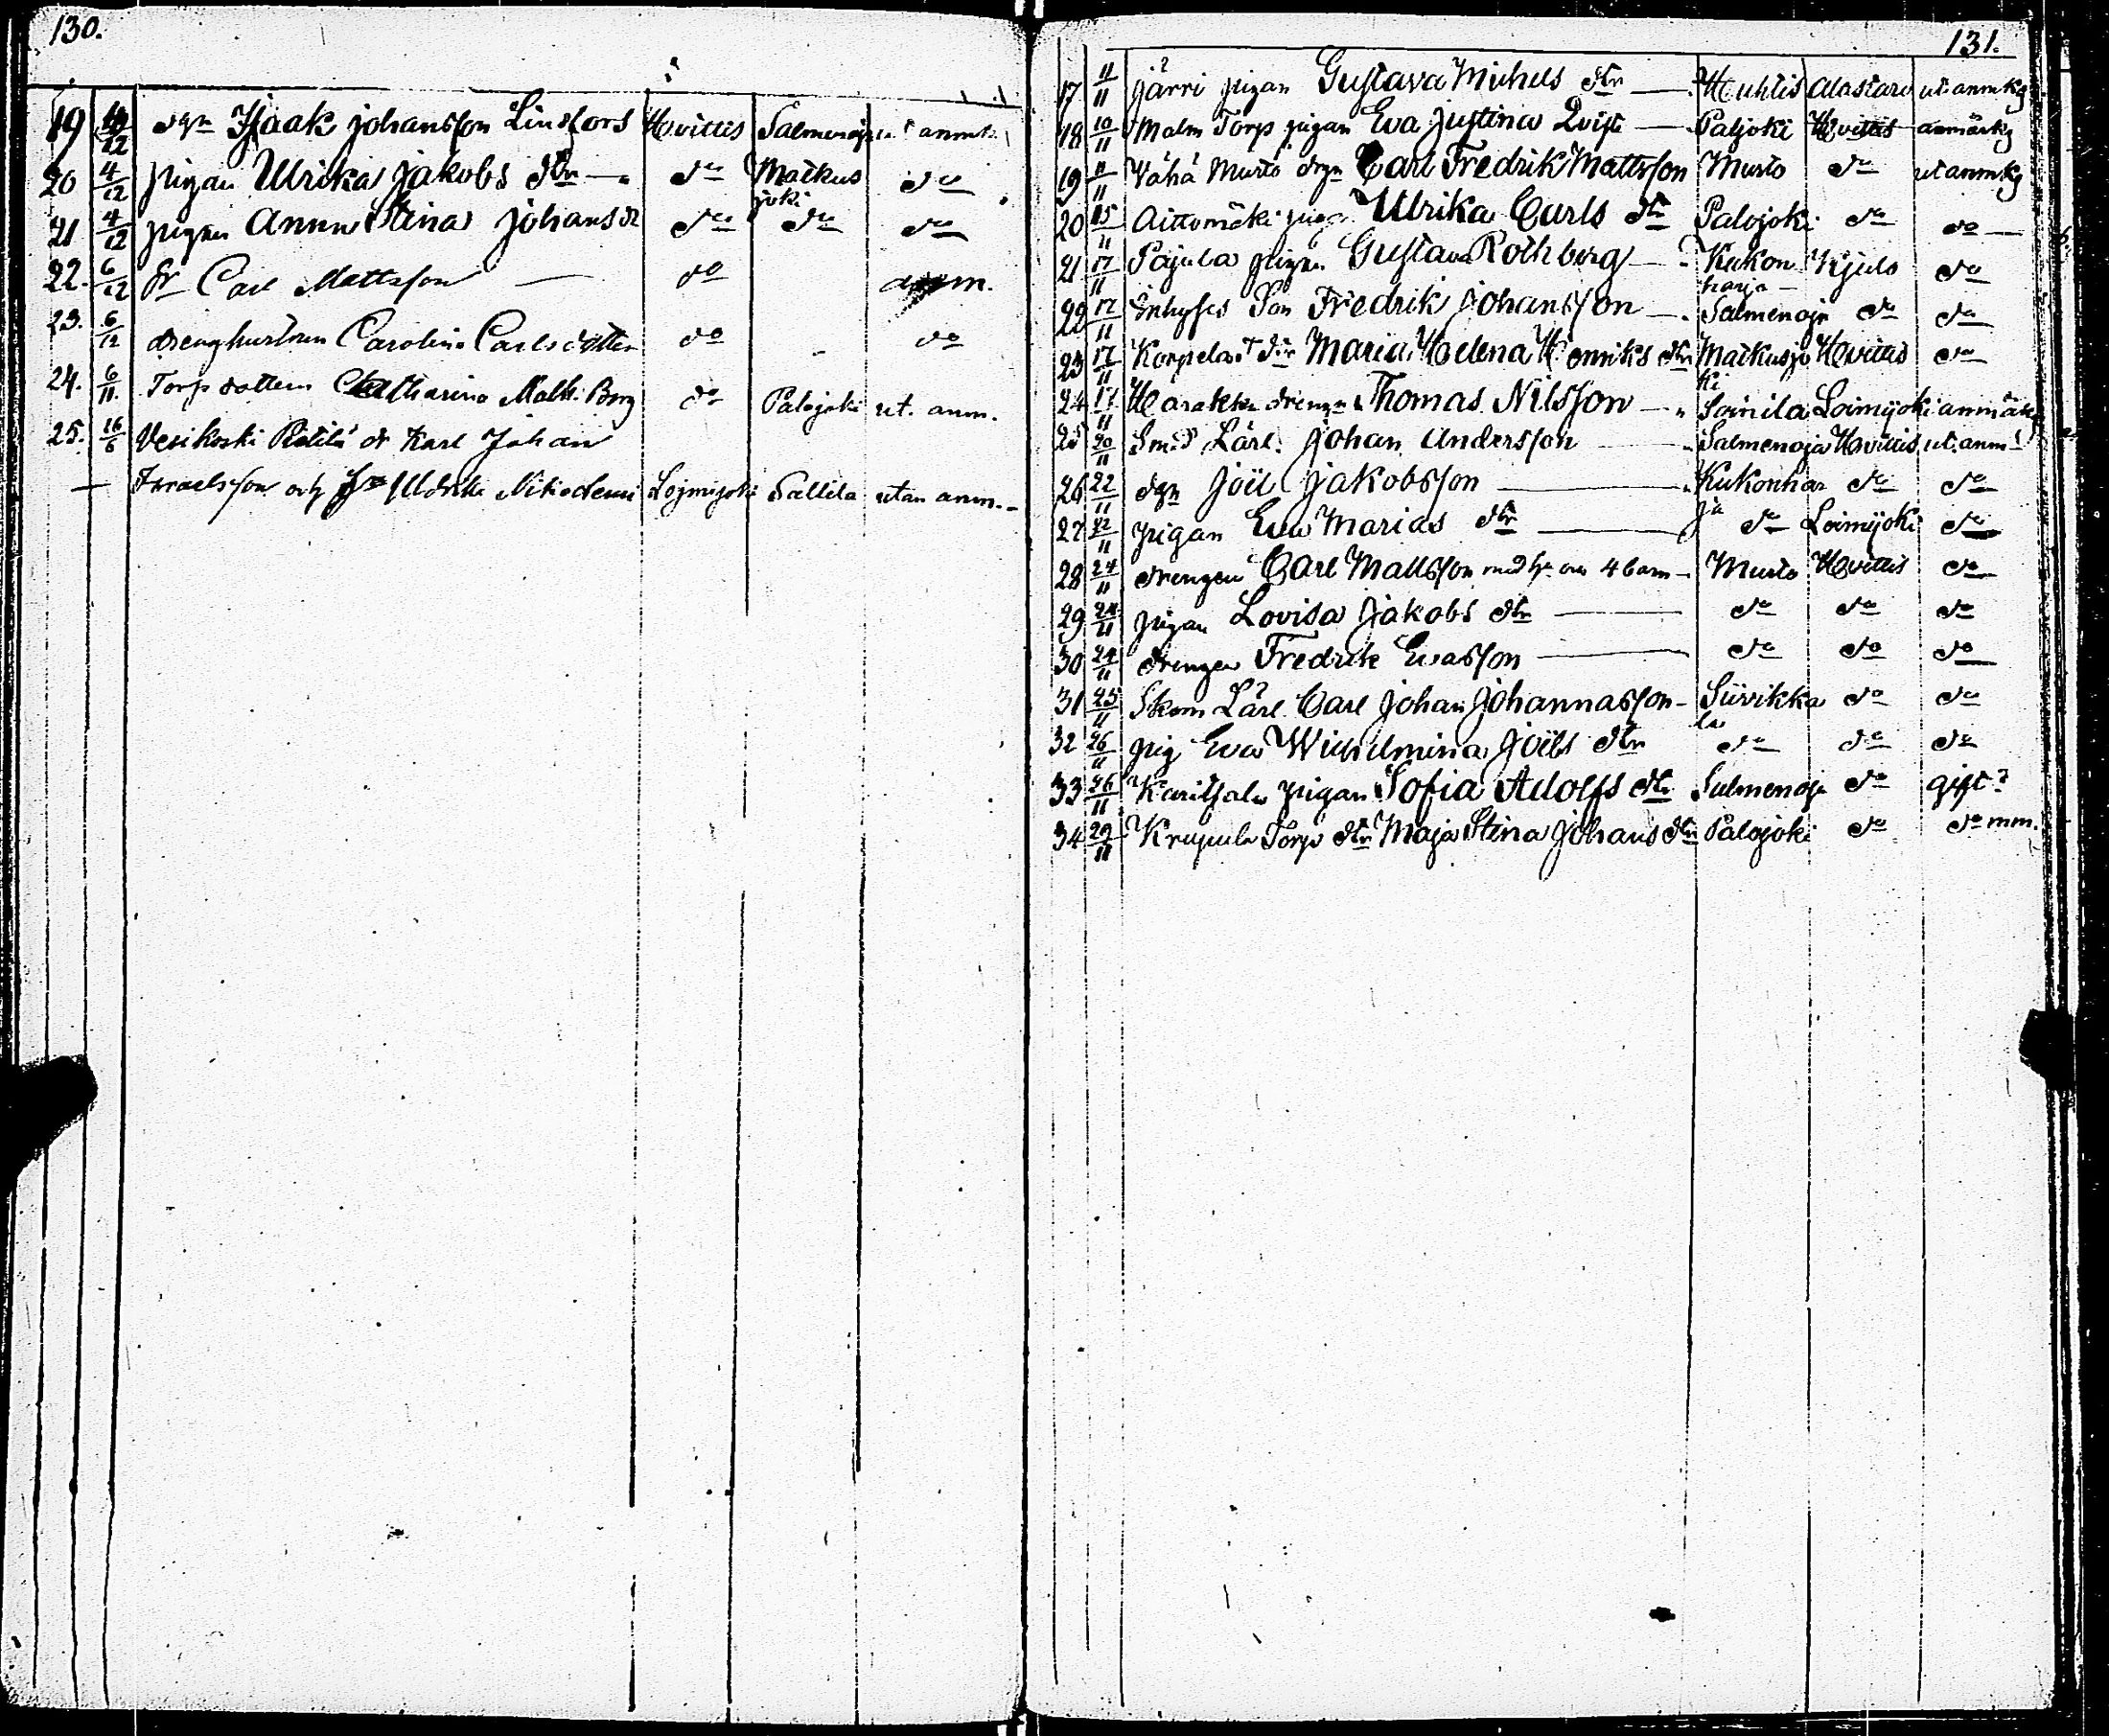 130.
19 12 dgn Isaak Johansson Lindfors Hvittis Salmenoja ut anmk.
20 4/12 pigan Ulrika Jakobs dtr do Matkus do
joki
21 4/12 pigan Anna Stina Johans dr do do do
22. 6/12 dr Carl Mattsson do anm.
23. 6/12 drenghustrun Carolina Carlsdotter do do
24. 6/11. Torp dottern Catharina Math. Berg do Palojoki ut. anm.
25. 16/6 Vesikoski Rätilä dr Karl Johan
Israelsson och Hu Uldrika Nikodemi Lojmijoki Sallila utan anm.
131.
17 11/11 Järri pigan Gustava Michels dtr Huhtis Alastaro ut anmkg
18 10/11 Malm Torp pigan Eva Justina Qvist Paljoki Hvittis anmärkg
19 11/11 Vähä Murto drgn Carl Fredrik Mattsson Murto do ut anmkg
20 15/11 Aittomäki piga Ulrika Carls dtr Palojoki do do
21 17/11 Pajula pigan Gustava Rothberg Kukon Kjulo do
harja
22 17/11 Inhyses Son Fredrik Johansson Salmenoja do do
23 17/11 Korpela T dtr Maria Helena Henriks dtr Matkusjo Hvittis do
ki
24 17/11 Harakka drengn Thomas Nilsson Soinila Loimijoki anmärk
25 20/11 Smed Lärl. Johan Andersson Salmenoja Hvittis ut. anm
26 22/11 dgn Joël Jakobsson Kukonhar do do
ja
27 22/11 pigan Eva Marias dtr do Loimijoki do
28 24/11 drengen Carl Mattsson med hu och 4 barn Murto Hvittis do
29 24/11 pigan Lovisa Jakobs dtr do do do
30 24/11 drengen Fredrik Evasson do do do
31 25/11 Skom Lärl. Carl Johan Johannasson Siivikka do do
la
32 26/11 pig Eva Wilhelmina Joëls dtr do do do
33 26/11 Karitsala pigan Sofia Adolfs dtr Salmenoja do gift?
34 29/11 Krupula Torp dtr Maja Stina Johans dtr Palojoki do do mm.